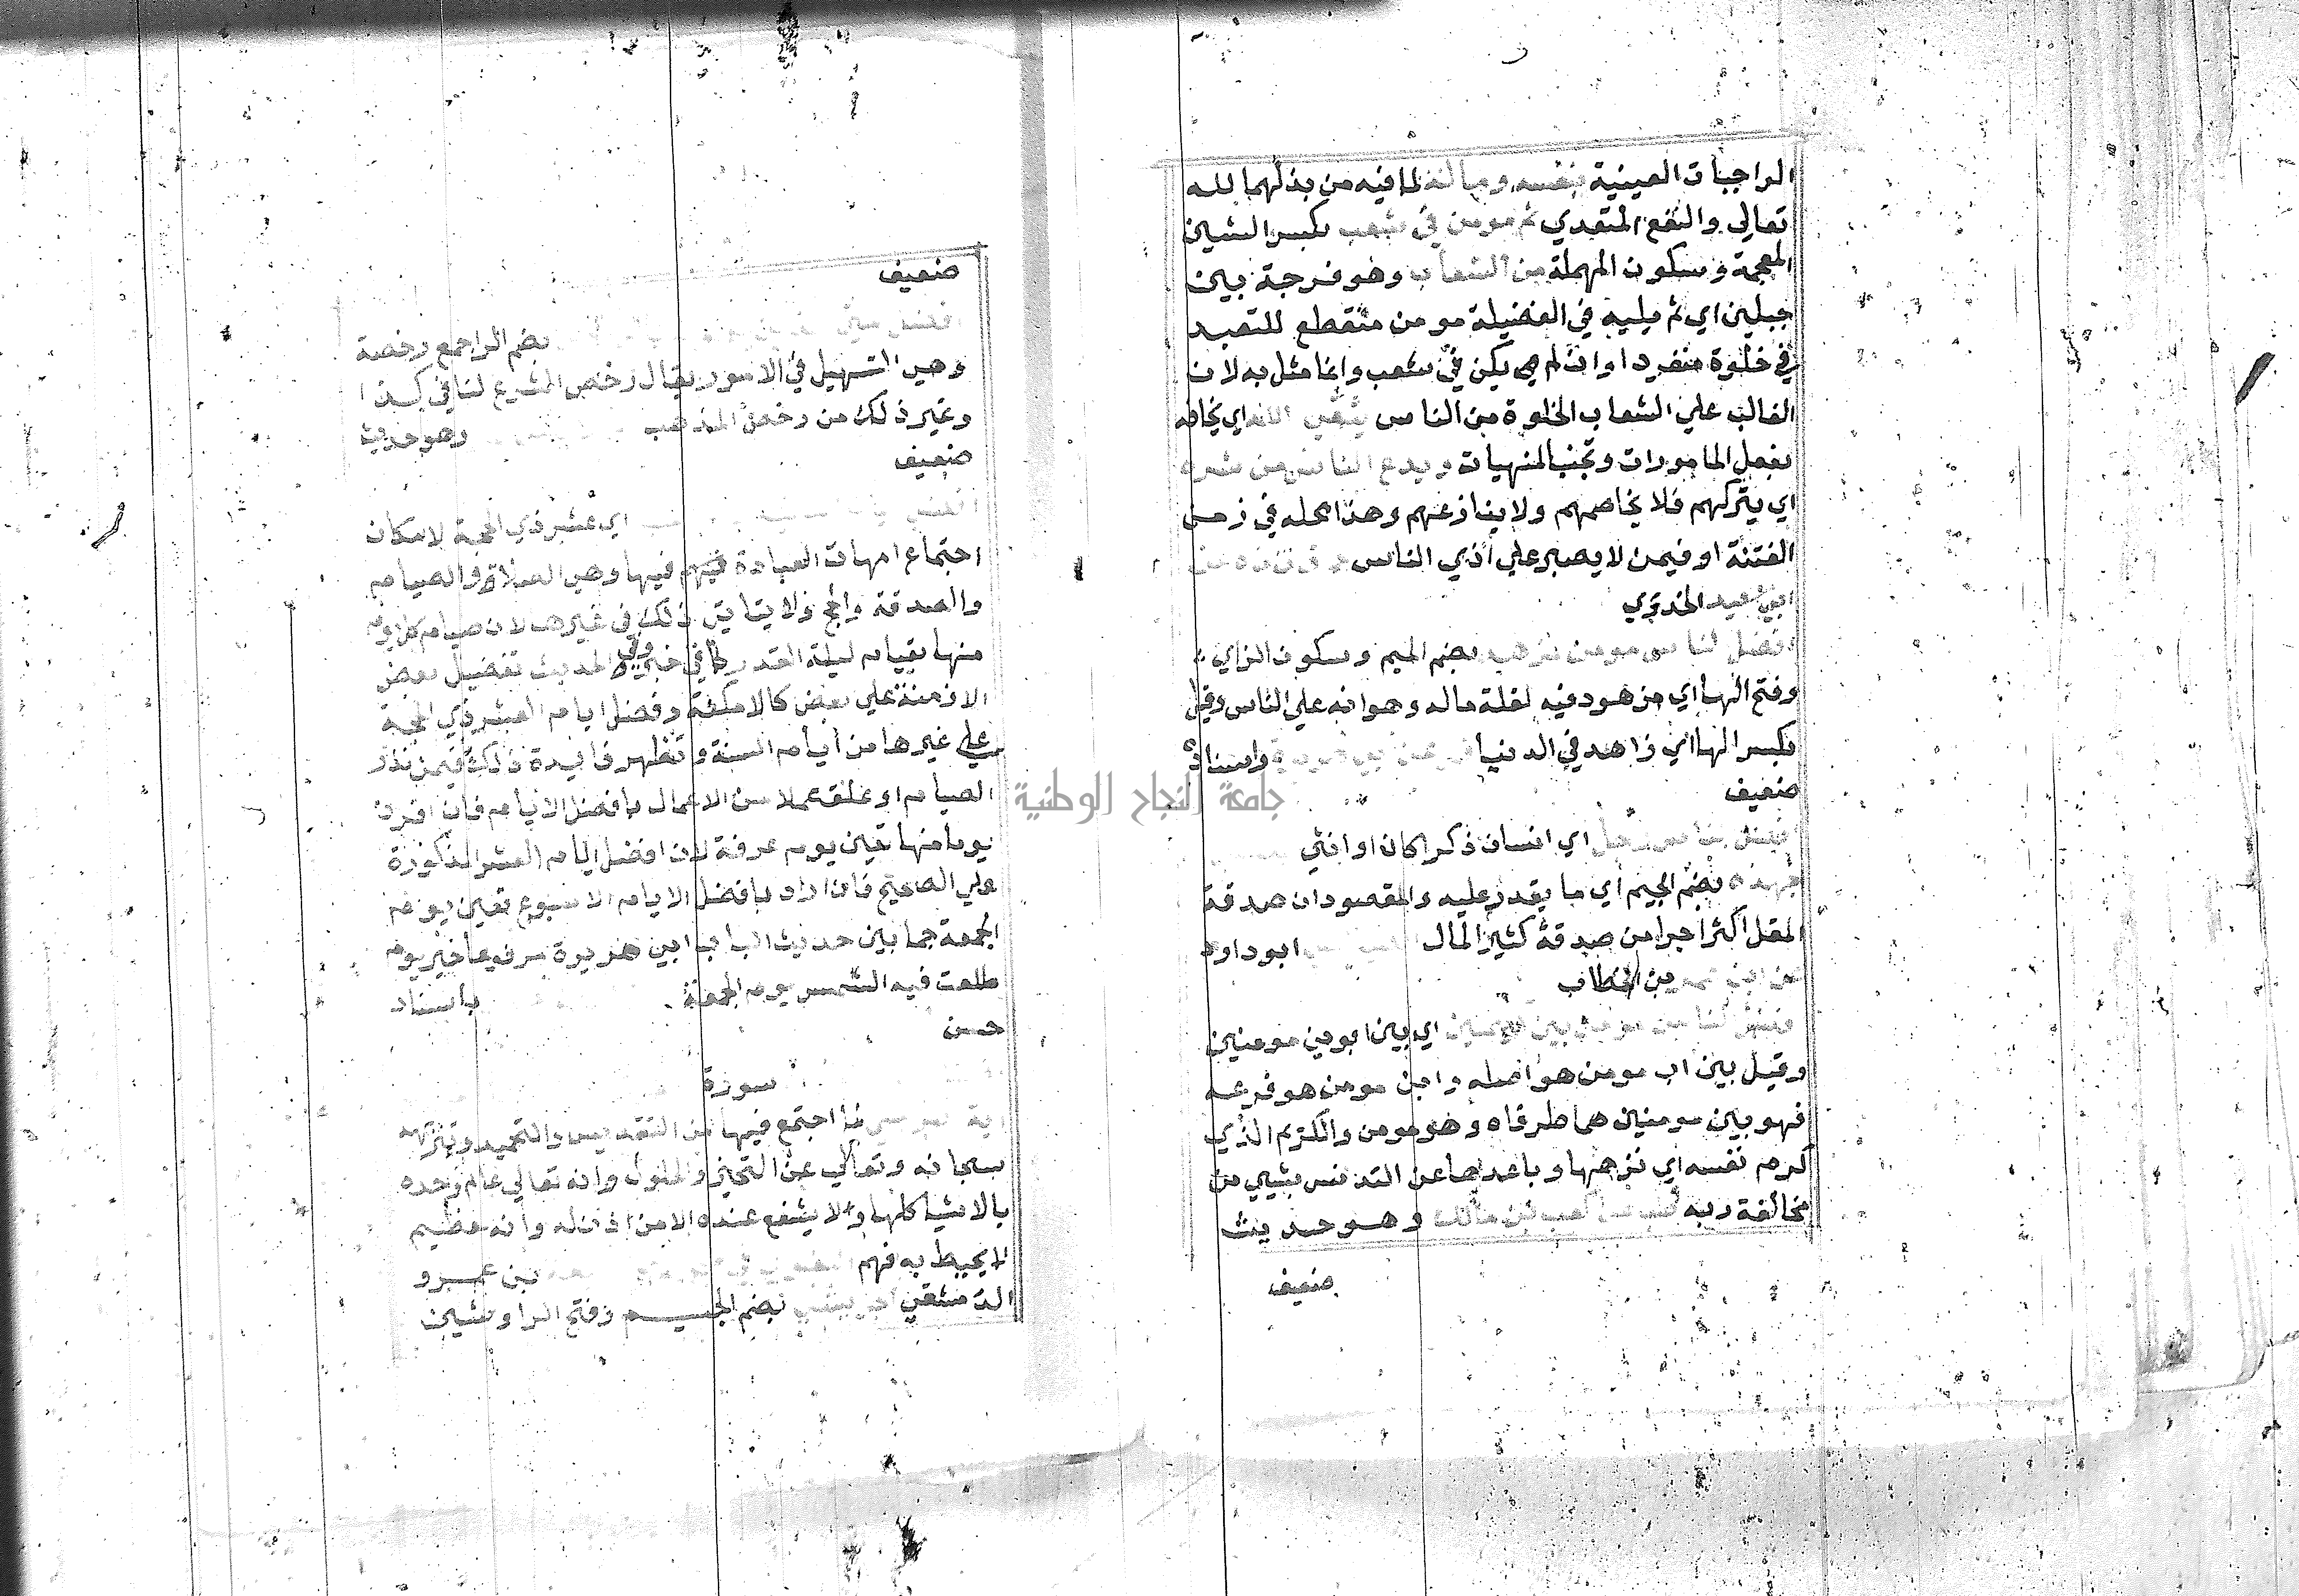 الواجبات العينية بنفسه وماله لما فيه من بذلهما لله
تعالي والنفع المتعدي ثم مومن في شعب بكسر الشين
المعجمة وسكون المهملة من الشعاب وهو فرجة بين
جبلين اي ثم يليه في الفضيلة مومن منقطع للتعبد
في خلوة منفردا وان لم يكن في شعب وانما مثل به لان
الغالب علي الشعاب الخلوة من الناس يتقي الله اي يخافه
بفعل المامورات وتجنب المنهيات ويدع الناس من شره
اي يتركهم فلا يخاصمهم ولا ينازعهم وهذا محله في زمن
الفتنة او فيمن لا يصبر علي اذي الناس
ابي سعيد الخدري
افضل الناس مومن مزهد بضم الميم وسكون الزاي
وفتح الها اي مزهود فيه لقلة ماله وهوانه علي الناس وقيل
بكسر الها اي زاهد في الدنيا واسناده
ضعيف
رجل اي انسان ذكرا كان او انثي
جهده بضم الجيم اي ما يقدر عليه والمقصود ان صدقة
المقل اكثر اجرا من صدقة كثير المال ابو داود
عن ابن عمر بن الخطاب
افضل الناس مومن بين كريمين اي بين ابوين مومنين
وقيل بين اب مومن هو اصله وابن مومن هو فرعه
فهو بين مومنين هما طرفاه وهو مومن والكريم الذي
كرم نفسه اي نزهها وباعدها عن التدنس بشيي من
مخالفة ربه كعب بن مالك وهو حديث
ضعيف
جامعة النجاح الوطنية
ضعيف
بضم الرا جمع رخصة
وهي التسهيل في الامور يقال رخص الشرع لنا في كذا
وغير ذلك من رخص المذهب وهو حديث
ضعيف
اي عشر ذي الحجة لامكان
اجتماع امهات العبادة فيها وهي الصلاة والصيام
والصدقة والحج ولا يتاتي ذلك في غيرها لان صيام كل يوم
منها بقيام ليلة القدر كما في خبر وفي الحديث تفضيل بعض
الازمنة علي بعض كالامكنة وفضل ايام العشر ذي الحجة
علي غيرها من أيام السنة وتظهر فايدة ذلك فيمن نذر
الصيام او علق عملا من الاعمال بافضل الايام فان افرد
يوما منها تعين يوم عرفة لان افضل ايام العشر المذكورة
علي الصحيح فان اراد بافضل الايام الاسبوع تعين يوم
الجمعة جمعا بين حديث الباب ابي هريرة مرفوعا خير يوم
طلعت فيه الشمس يوم الجمعة باسناد
حسن
سورة
اية الكرسي لما اجتمع فيها من التقديس والتحميد وتنزيه
سبحانه وتعالي عن التحيز والحلول وانه تعالي عالم وحده
بالاشيا كلها ولا يشفع عنده الا من اذن له وانه عظيم
لا يحيط به فهم بن عمرو
الدمشقي الجرشي بضم الجيم وفتح الرا وشين